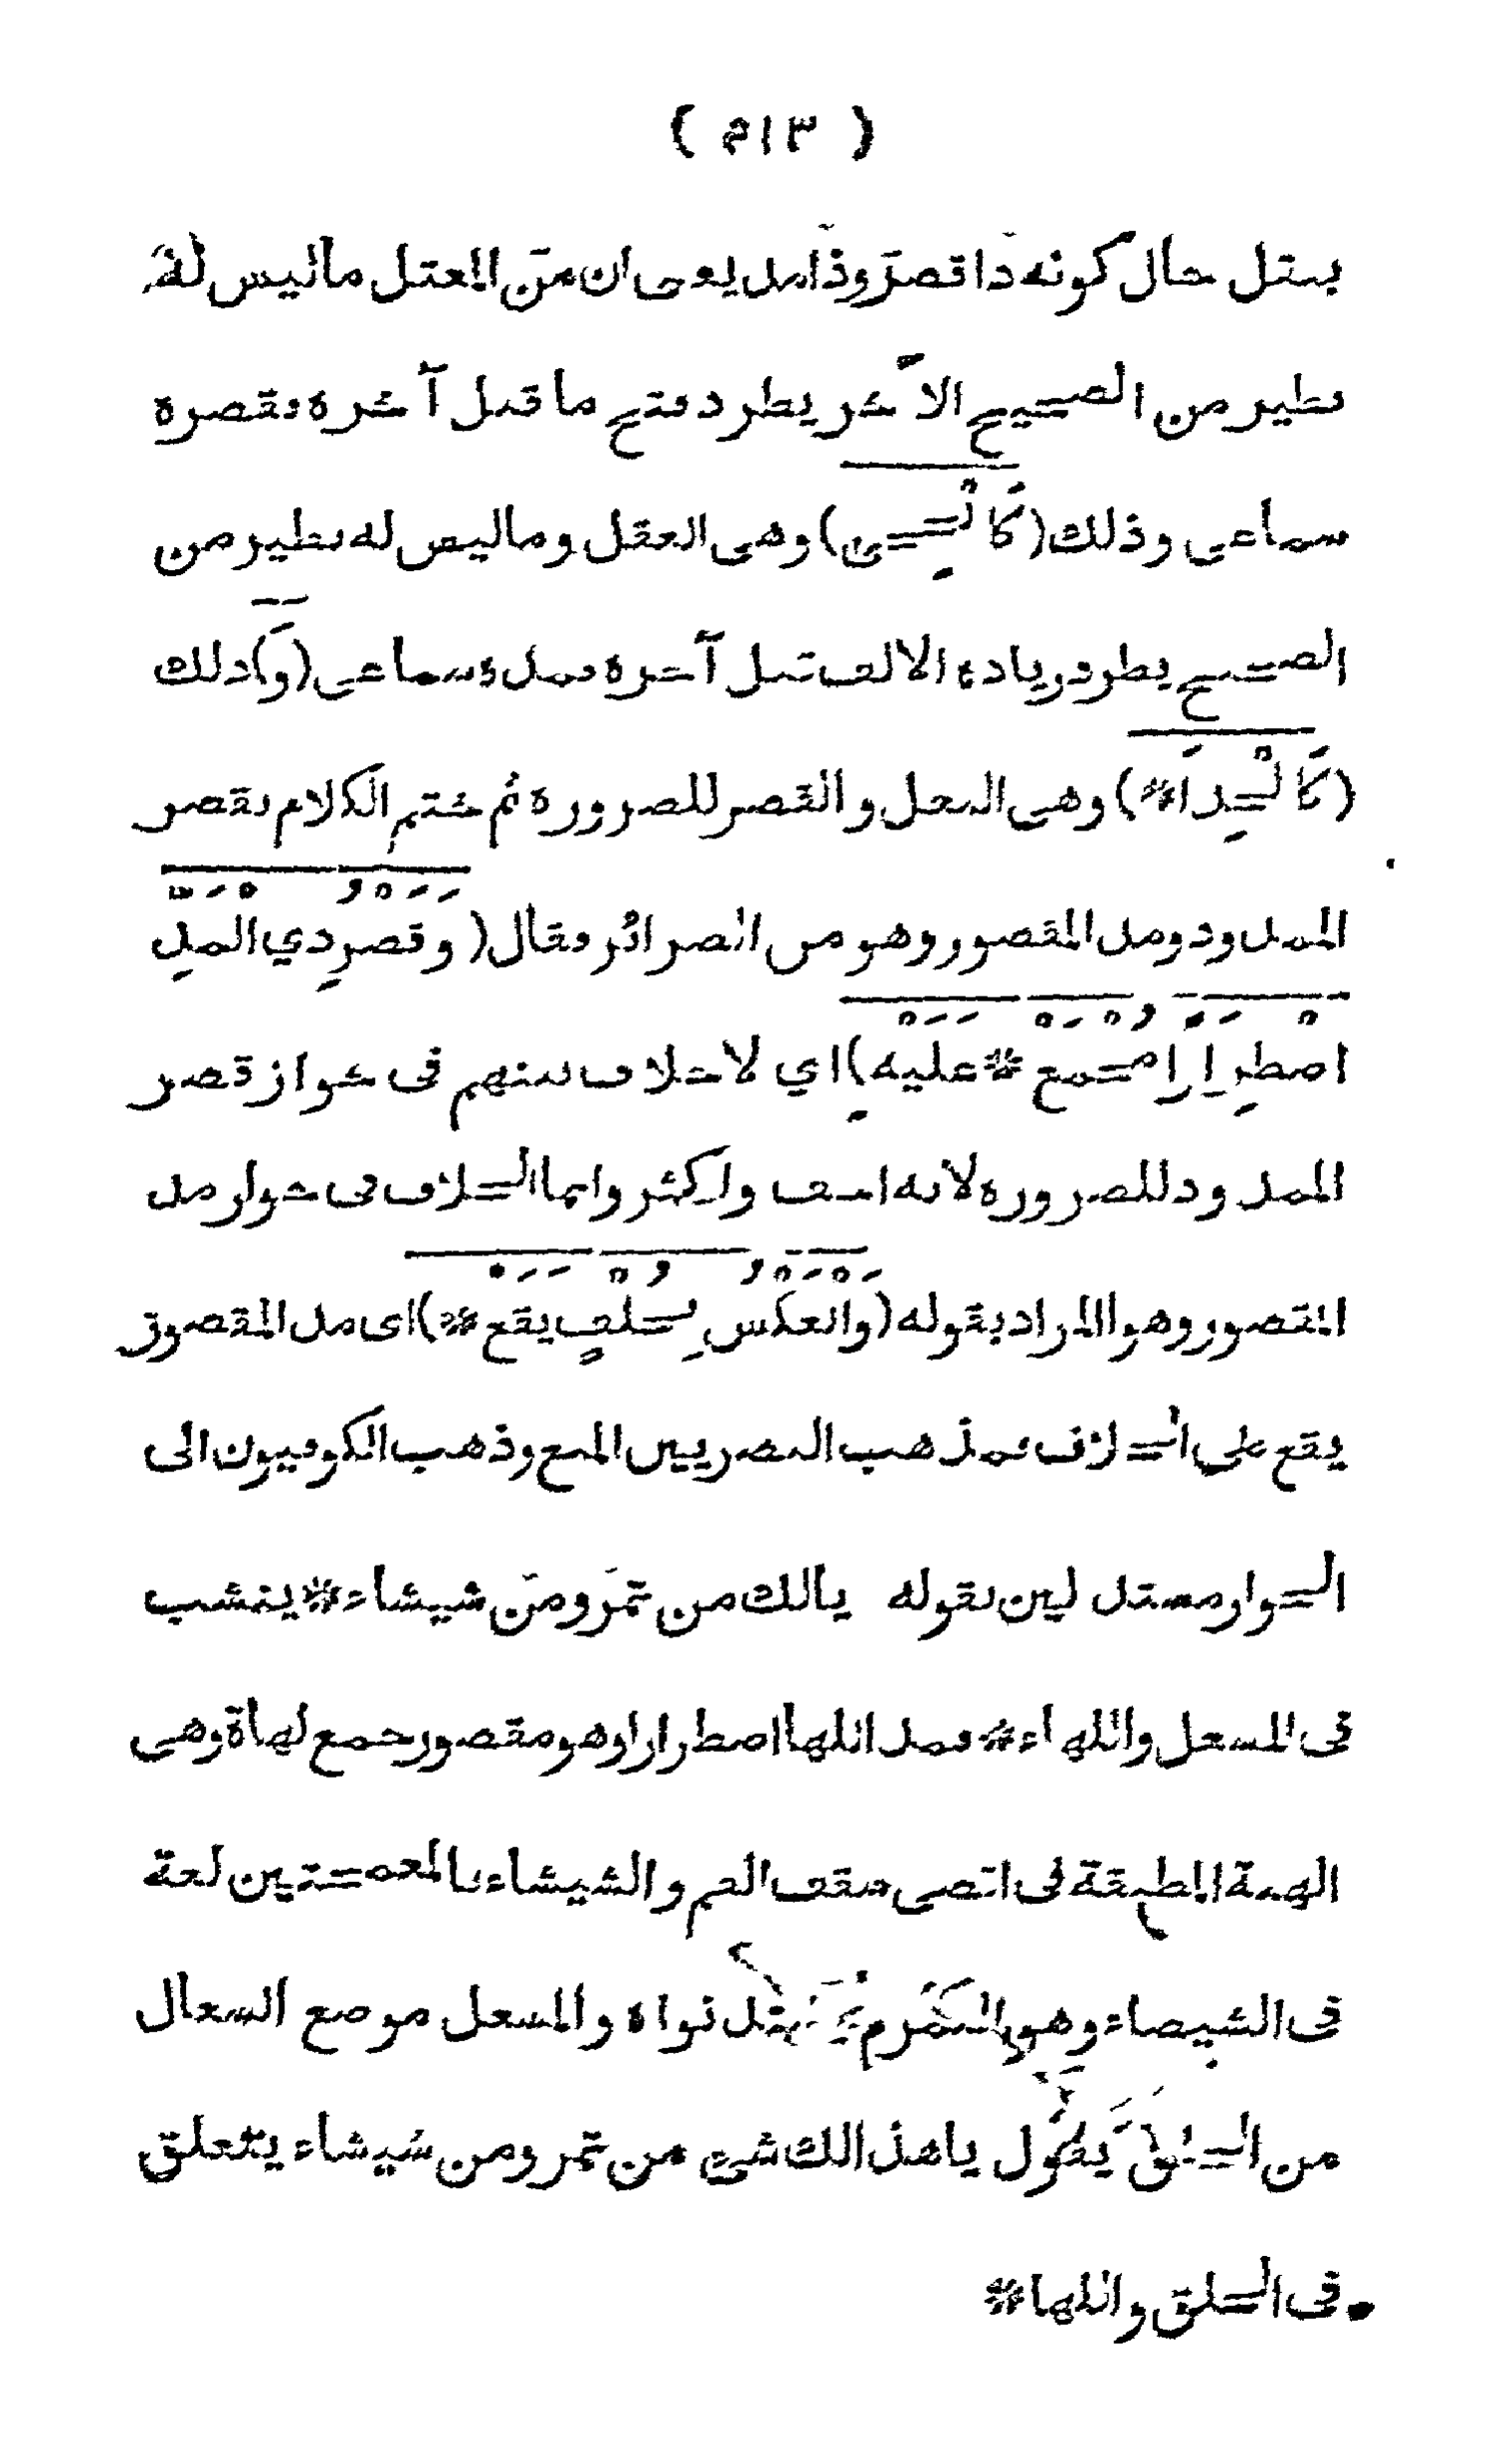 ( ٣١٣ )
ينقل حال كونه ذا قصر وذا مد يعني ان من المعتل ماليس له
نظير من الصحيح الآخر يطرد فتح ما قبل آخره فقصره
سماعي وذلك (كَالْحِجى) وهي العقل وماليس له نظير من
الصحيح يطرد زيادة الالف قبل آخره فمده سماعي (وَ) ذلك
(كَالْحِذَا*) وهي النعل والقصر للضرورة ثم ختم الكلام بقصر
الممدود ومد المقصور وهو من الضرائر فقال (وَقَصْرُ ذِي الْمَدِّ
اضْطِرَارًا مُجْمَعُ * عَلَيْهِ) اي لا خلاف بينهم في جواز قصر
الممدود للضرورة لانه اخف واكثر وانما الخلاف في جواز مد
المقصور وهو المراد بقوله (وَالْعَكْسُ بِخُلْفٍ يَقَعُ *) اى مد المقصور
يقع على الخلاف فمذهب البصريين المنع وذهب الكوفيون الى
الجواز مستدلين بقوله يالك من تمر ومن شيشاء * ينشب
في المسعل واللهاء * فمد اللها اضطرارا وهو مقصور جمع لهاة وهي
الهنة المطبقة في اقصى سقف الفم والشيشاء بالمعجمتين لغة
في الشيصاء وهو التمر لم نواه والمسعل موضع السعال
من الحلق يقول يا هذا لك شيء من تمر ومن شيشاء يتعلق
في الحلق واللها *